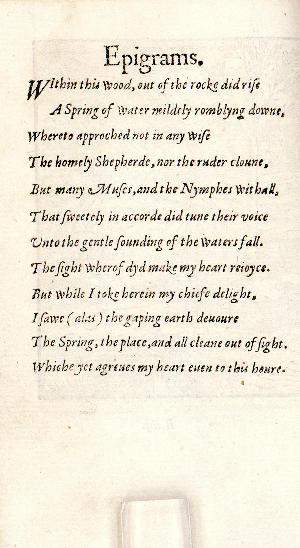 Epigrams.
WIthin this wood, out of the rocke did rise
A Spring of water mildely romblyng downe,
Whereto approched not in any wise
The homely Shepherde, nor the ruder cloune,
But many Muses, and the Nymphes withall,
That sweetely in accorde did tune their voice
Unto the gentle sounding of the waters fall.
The sight wherof dyd make my heart rejoyce.
But while I toke herein my chiefe delight,
I sawe (alas) the gaping earth devoure
The Spring, the place, and all cleane out of sight.
Whiche yet agreves my heart even to this houre.